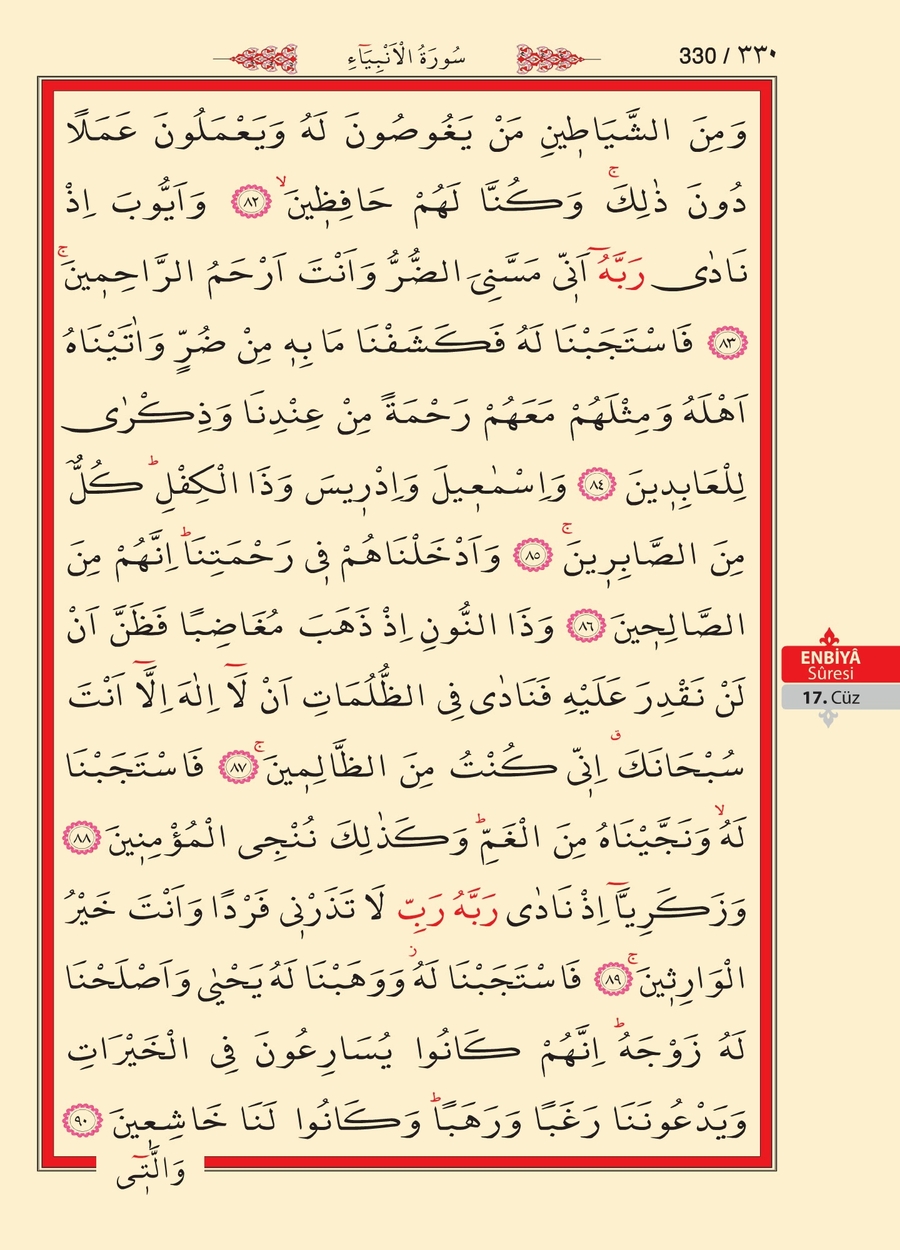 سُورَةُ الْاَنْبِيَٓاءِ
330 / ٣٣٠
وَمِنَ الشَّيَاط۪ينِ مَنْ يَغُوصُونَ لَهُ وَيَعْمَلُونَ عَمَلًا
دُونَ ذٰلِكَۚ وَكُنَّا لَهُمْ حَافِظ۪ينَۙ ٨٢ وَاَيُّوبَ اِذْ
نَادٰى رَبَّهُٓ اَنّ۪ي مَسَّنِيَ الضُّرُّ وَاَنْتَ اَرْحَمُ الرَّاحِم۪ينَۚ
٨٣ فَاسْتَجَبْنَا لَهُ فَكَشَفْنَا مَا بِه۪ مِنْ ضُرٍّ وَاٰتَيْنَاهُ
اَهْلَهُ وَمِثْلَهُمْ مَعَهُمْ رَحْمَةً مِنْ عِنْدِنَا وَذِكْرٰى
لِلْعَابِد۪ينَ ٨٤ وَاِسْمٰع۪يلَ وَاِدْر۪يسَ وَذَا الْكِفْلِۜ كُلٌّ
مِنَ الصَّابِر۪ينَۚ ٨٥ وَاَدْخَلْنَاهُمْ ف۪ي رَحْمَتِنَاۜ اِنَّهُمْ مِنَ
الصَّالِح۪ينَ ٨٦ وَذَا النُّونِ اِذْ ذَهَبَ مُغَاضِبًا فَظَنَّ اَنْ
لَنْ نَقْدِرَ عَلَيْهِ فَنَادٰى فِي الظُّلُمَاتِ اَنْ لَٓا اِلٰهَ اِلَّٓا اَنْتَ
سُبْحَانَكَۗ اِنّ۪ي كُنْتُ مِنَ الظَّالِم۪ينَۚ ٨٧ فَاسْتَجَبْنَا
لَهُۙ وَنَجَّيْنَاهُ مِنَ الْغَمِّۜ وَكَذٰلِكَ نُنْجِي الْمُؤْمِن۪ينَ ٨٨
وَزَكَرِيَّٓا اِذْ نَادٰى رَبَّهُ رَبِّ لَا تَذَرْن۪ي فَرْدًا وَاَنْتَ خَيْرُ
الْوَارِث۪ينَۚ ٨٩ فَاسْتَجَبْنَا لَهُۘ وَوَهَبْنَا لَهُ يَحْيٰى وَاَصْلَحْنَا
لَهُ زَوْجَهُۜ اِنَّهُمْ كَانُوا يُسَارِعُونَ فِي الْخَيْرَاتِ
وَيَدْعُونَنَا رَغَبًا وَرَهَبًاۜ وَكَانُوا لَنَا خَاشِع۪ينَ ٩٠
وَالَّت۪ٓي
ENBİYÂ
Sûresi
17. Cüz